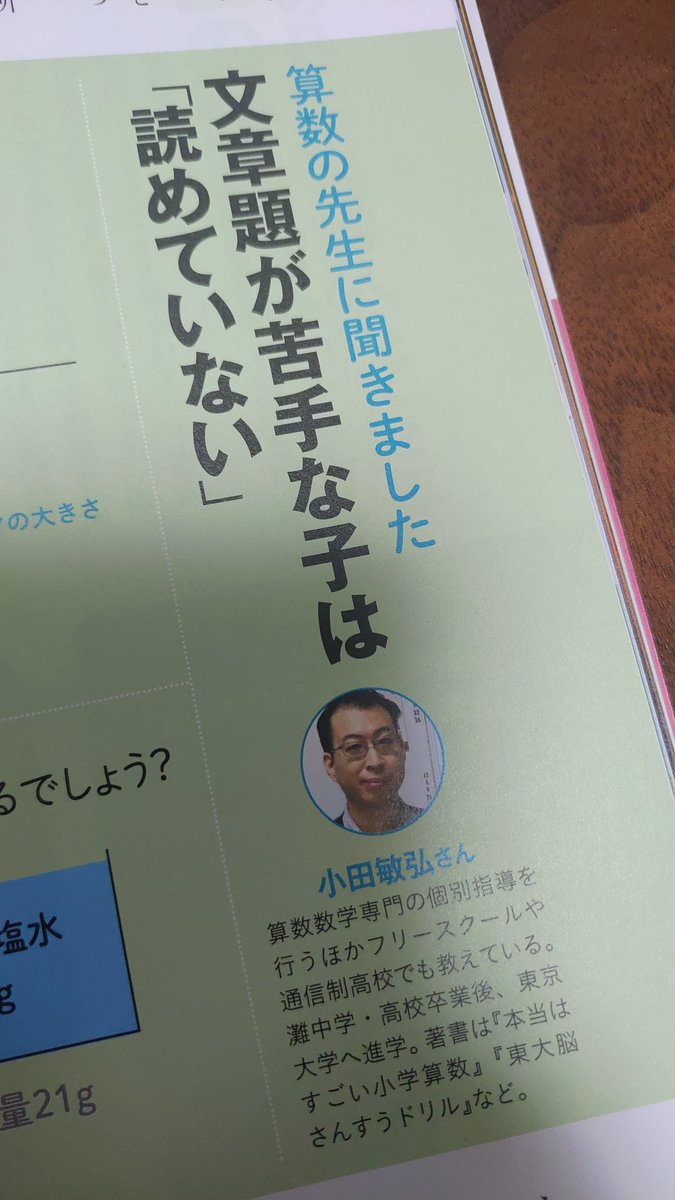 算数の先生に聞きました
文章題が苦手な子は
「読めていない」
小田敏弘さん
算数数学専門の個別指導を
行うほかフリースクールや
通信制高校でも教えている。
灘中学・高校卒業後、東京
大学へ進学。著書は『本当は
すごい小学算数』『東大脳
さんすうドリル』など。
の大きさ
るでしょう?
塩水
g
量21g